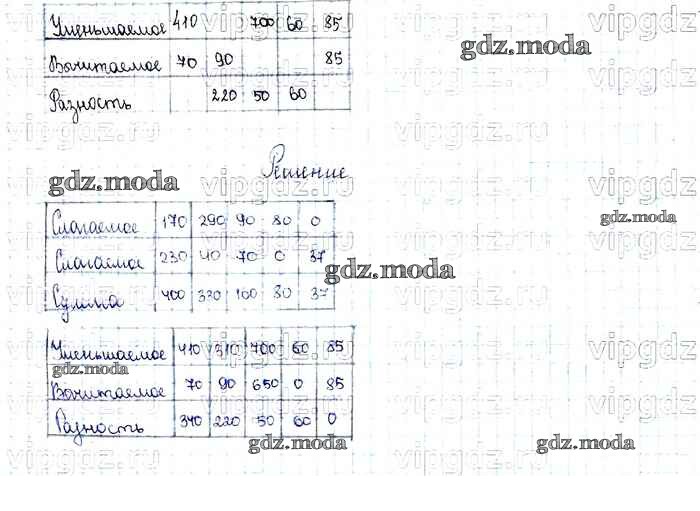 Уменьшаемое 410 700 60 85
gdz.moda
Вычитаемое 70 90 85
Разность 220 50 60
Решение
gdz.moda
Слагаемое 170 290 90 80 0
gdz.moda
Слагаемое 230 40 70 0 37
gdz.moda
Сумма 400 330 160 80 37
Уменьшаемое 410 310 700 60 85
gdz.moda
Вычитаемое 70 90 650 0 85
Разность 340 220 50 60 0
gdz.moda
gdz.moda
vipgdz.ru
vipgdz.ru
vipgdz.ru
vipgdz.ru
vipgdz.ru
vipgdz.ru
vipgdz.ru
vipgdz.ru
vipgdz.ru
vipgdz.ru
vipgdz.ru
vipgdz.ru